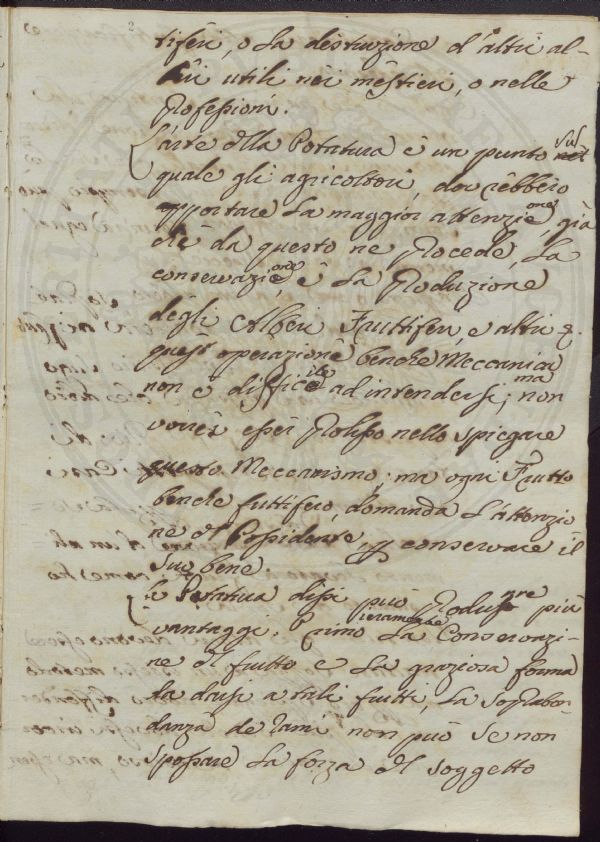 2
tiferi, o la destruzione d'altri al-
beri utili nei mestieri, o nelle
Professioni.
L'arte della Potatura è un punto sul
quale gli agricoltori, dovrebbero
apportare la maggior attenzione, già
chè da questo ne procede, la
conservazione, è la Produzione
degli Alberi Fruttiferi, e altri
quest'operazione benche Meccanica
non è difficile ad intendersi; ma non
vorrei esser prolisso nello spiegare
questo Meccanismo; ma ogni Frutto
benche fruttifero, domanda l'attenzio
ne del Possidente, p conservare il
suo bene.
la Potatura dissi può produrre più
vantaggi. Primieramente la Conservazi-
ne del frutto e la graziosa forma
da darsi a tali frutti, la soprabon-
danza de rami non può se non
spossare la forza del soggetto